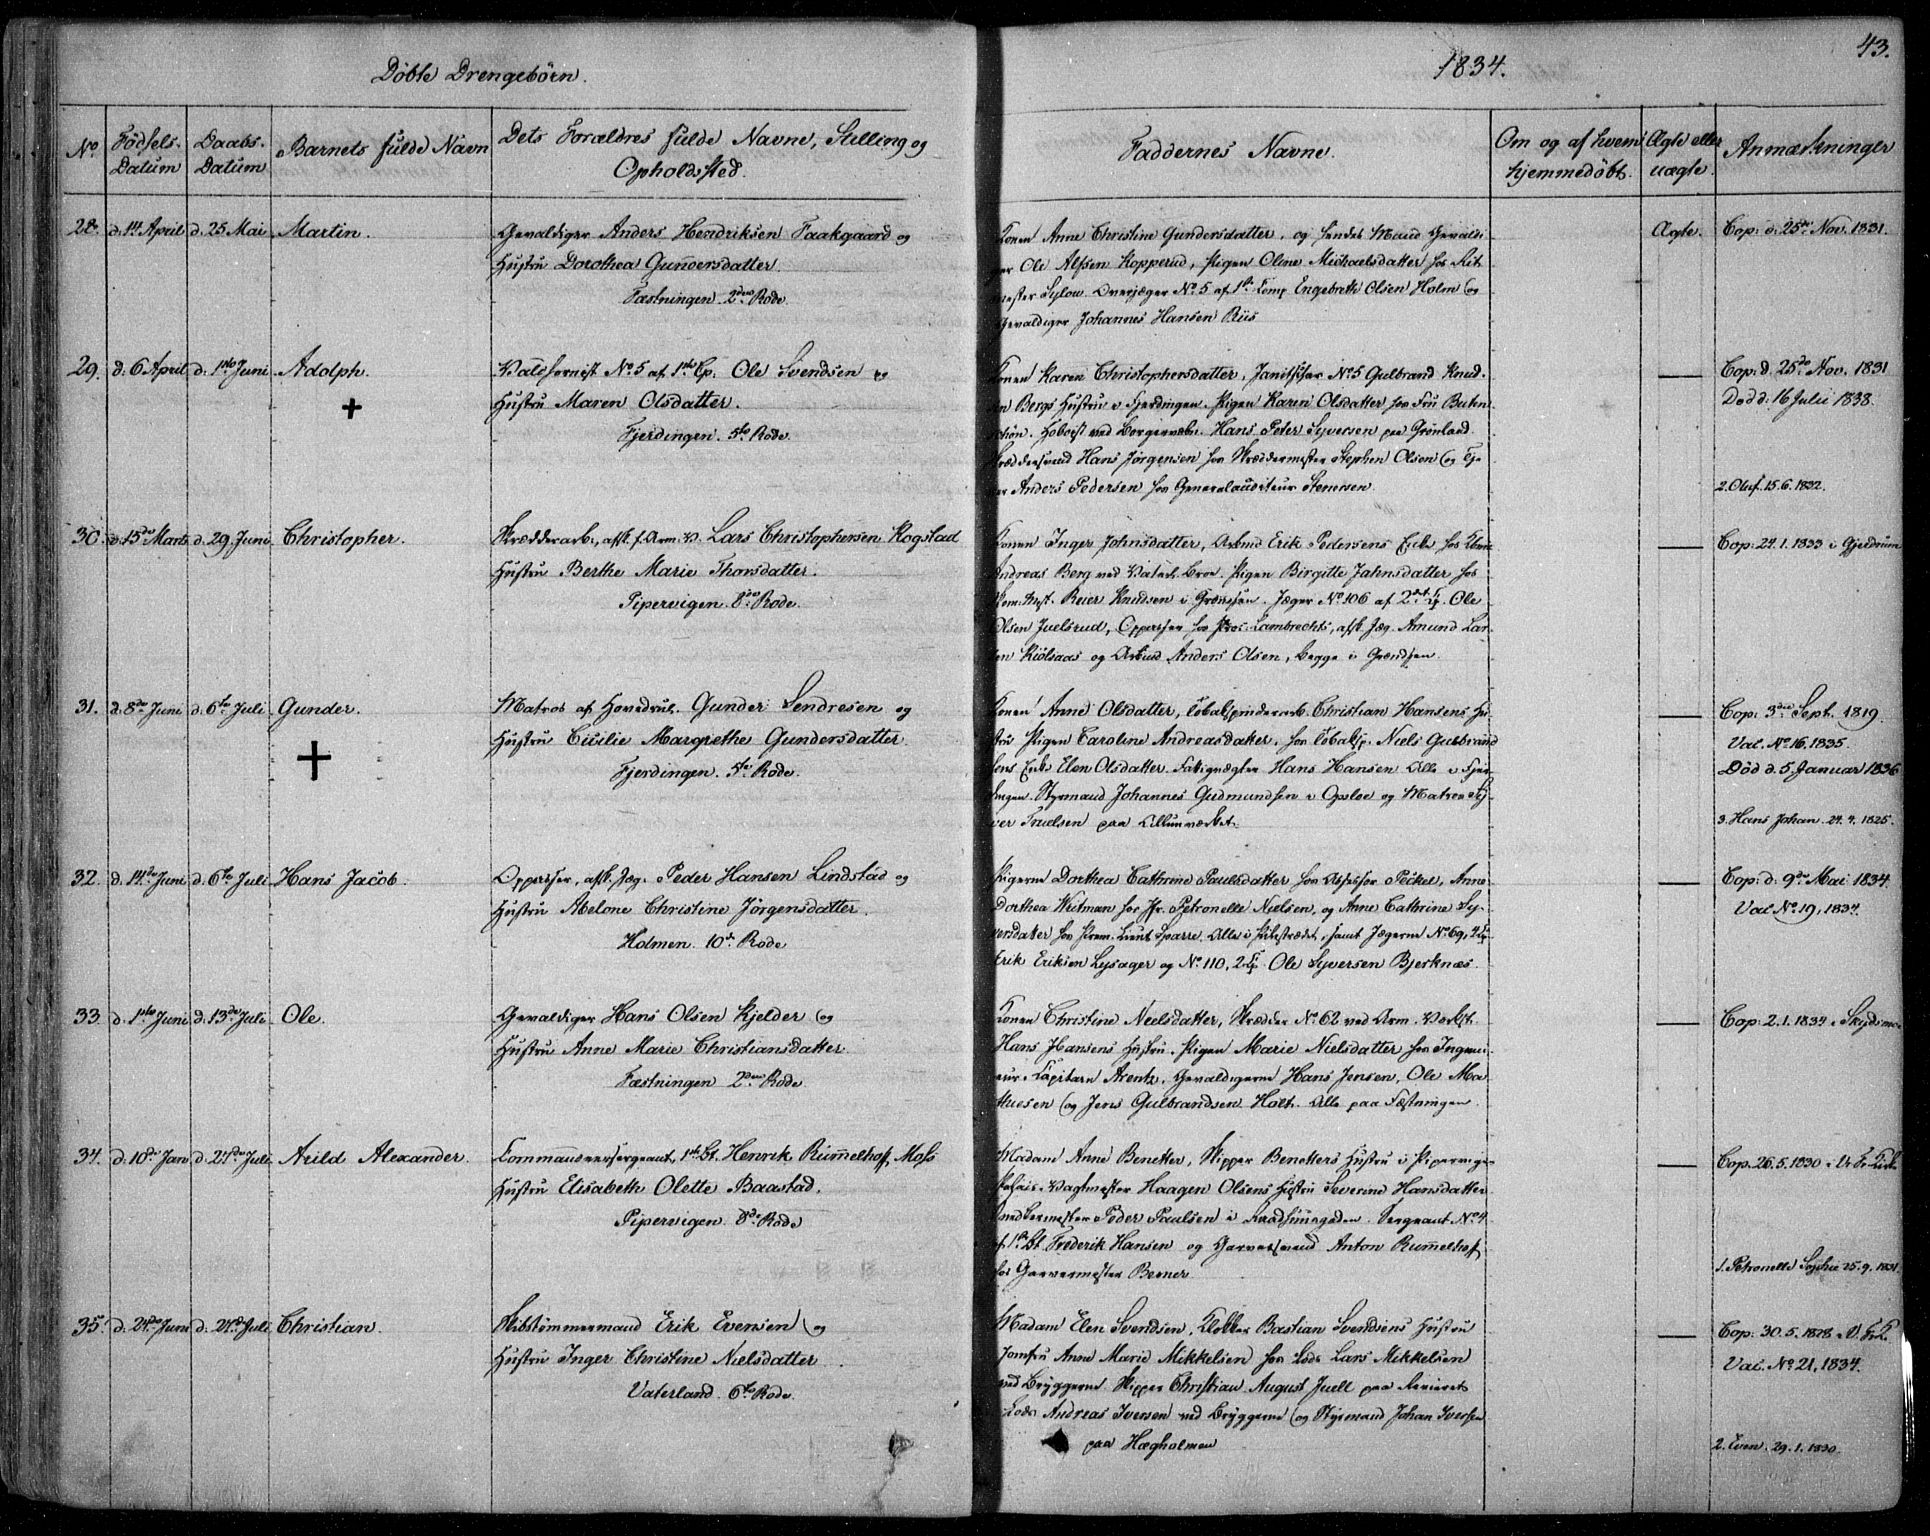 Döbte Drengebörn.
1834.
43.
No
Födsels-
Datum
Daabs-
Datum
Barnets fulde Navn
Dets Forældres fulde Navne, Stilling og
Opholdssted.
Faddernes Navne.
Om og af hvem
hjemmedöbt.
Ægte eller
uægte.
Anmærkninger
28. d. 14 April d. 25 Mai Martin.
Gevaldiger Anders Hendriksen Faakgaard og
Hustru Dorothea Gundersdatter.
Fæstningen. 2den Rode
Konen Anne Christine Gundersdatter, og hendes Mand Gevaldi-
ger Ole Alfsen Kopperud, Pigen Oline Michaelsdatter hos Rit-
mester Sylow. Overjæger No. 5 af 1ste Comp Engebreth Olsen Holm og
Gevaldiger Johannes Hansen Riis
Ægte.
Cop: d. 25de Nov. 1831.
29. d. 6 April d. 1ste Juni Adolph.
Valdhornist No. 5 af 1ste Cp. Ole Svendsen og
Hustru Maren Olsdatter.
Fjerdingen. 5te Rode.
Konen Karen Christophersdatter, Janitschar No. 5 Gulbrand Knud-
sen Bergs Hustru i Fjerdingen. Pigen Karen Olsdatter hos Fru
Hoboist ved Borgervæbn. Hans Peter Syversen paa Grønland
Skræddersvend Hans Jörgensen hos Skræddermester Stephen Olsen og
Anders Pedersen hos Generalauditeur Stenersen.
Cop: d. 25de Nov. 1831
Död d. 16 Julii 1838.
2. Oluf. 15.6.1832.
30. d. 15de Marts d. 29 Juni Christopher.
Skrædderarb., afsk. f. Arm. V. Lars Christophersen Rogstad
Hustru Berthe Marie Thorsdatter.
Pipervigen. 8de Rode.
Konen Inger Johnsdatter, Arbmd Erik Pedersens Enke hos
Andreas Berg ved Vaterl. Broe. Pigen Birgitte Jahnsdatter hos
Reier Knudsen i Grændsen. Jæger No. 106 af 2det Cp. Ole
Olsen Juelsrud, Oppasser hos Lambrechts, afsk. Jæg. Amund Lar-
sen Kiölsaas og Arbmd Anders Olsen, begge i Grændsen.
Cop: 24.1.1833 i Gjerdrum
31. d. 8de Juni d. 6te Juli Gunder.
Matros af Hovedrul. Gunder Sendresen og
Hustru Cicilie Margrethe Gundersdatter.
Fjerdingen. 5te Rode.
Konen Anne Olsdatter, Tobakspinderarb. Christian Hansens Hu-
stru Pigen Caroline Andreasdatter. hos Tobaksp. Niels Gulbrand-
sens Enke Elen Olsdatter. Fattigvægter Hans Hansen Alle i Fjer-
dingen. Styrmand Johannes Gudmundsen i Opsloe og Matros Sy-
ver Truelsen paa Allunværket.
Cop: 3die Sept. 1819.
Val. No. 16. 1835.
Död d. 5 Januar 1836
3. Hans Johan. 24.4.1825.
32. d. 14de Juni d. 6te Juli Hans Jacob.
Oppasser, afsk. Jæg. Peder Hansen Lindstad og
Hustru Abelone Christine Jörgensdatter.
Holmen. 10de Rode
Pigerne Dorthea Cathrine Paulsdatter hos Assessor Pickel, Anne
Dorthea Writman hos Jfr. Petronelle Nielsen, og Anne Cathrine Sy-
versdatter hos Prem. Lieut Sparre. Alle i Pilestrædet, samt Jægerne No. 69, 4 Cp
Erik Eriksen Lysager og No. 110, 2 Cp. Ole Syversen Bjerknæs.
Cop: d. 9de Mai 1834.
Val No. 19, 1834.
33. d. 1ste Juni d. 13de Juli Ole.
Gevaldiger Hans Olsen Kjelder og
Hustru Anne Marie Christiansdatter.
Fæstningen 2den Rode
Konen Christine Neelsdatter, Skrædder No. 62 ved Arm. Verkst.
Hans Hansens Hustru. Pigen Marie Nielsdatter hos Ingeni-
eur-Kapitain Arentz, Gevaldigerne Hans Jensen, Ole Ma-
thiesen og Jens Gulbrandsen Holt. Alle paa Fæstningen.
Cop: 2.1.1834 i Skydsmo
34. d. 10de Jan d. 27de Juli Arild Alexander.
Commandeersergeant, 1ste Bt. Henrik Rummelhoff, Moss
Hustru Elisabeth Olette Baastad.
Pipervigen. 8de Rode
Madam Anne Benetter, Skipper Benetters Hustru i Pipervigen
Palais-Vagtmester Haagen Olsens Hustru Severine Hansdatter
Snedkermester Peder Paulsen i Raadhuusgaden. Sergeant No. 4
af 1ste Bt. Frederik Hansen og Garversvend Anton Rummelhoff
hos Garvermester Berner
Cop: 26.5.1830 i Vr Fr Kirke
1. Petronelle Sophie 25.9.1831.
35. d. 24de Juni d. 27de Juli Christian.
Skibstömmermand Erik Evensen og
Hustru Inger Christine Nielsdatter.
Vaterland. 6te Rode.
Madam Elen Svendsen, Klokker Bastian Svendsens Hustru
Jomfru Anne Marie Mikkelsen hos Lods Lars Mikkelsen
ved Bryggerne. Skipper Christian August Juell paa Revieret
Lods Andreas Iversen ved Bryggerne og Styrmand Johan Iversen
paa Hægholmen
Cop: 30.5.1828 i V. Fr. K.
Val. No. 21, 1834.
2. Even. 29.1.1830.